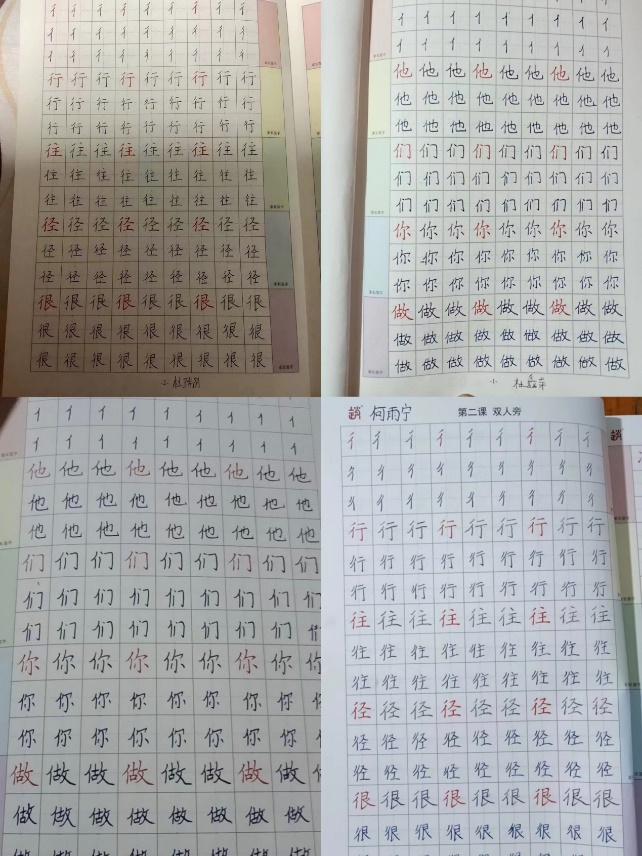 彳彳彳彳彳彳彳彳
彳彳彳彳彳彳彳彳
彳彳彳彳彳彳彳彳
行行行行行行行行
行行行行行行行行
行行行行行行行行
往往往往往往往往
往往往往往往往往
往往往往往往往往
径径径径径径径径
径径径径径径径径
径径径径径径径径
很很很很很很很很
很很很很很很很很
很很很很很很很很
亻亻亻亻亻亻亻亻
亻亻亻亻亻亻亻亻
他他他他他他他他
他他他他他他他他
他他他他他他他他
们们们们们们们们
们们们们们们们们
们们们们们们们们
你你你你你你你你
你你你你你你你你
你你你你你你你你
做做做做做做做做
做做做做做做做做
做做做做做做做做
亻亻亻亻亻亻亻亻
亻亻亻亻亻亻亻亻
他他他他他他他
他他他他他他他他
他他他他他他他他
们们们们们们们
们们们们们们们们
们们们们们们们
你你你你你你你你
你你你你你你你
你你你你你你你
做做做做做做做
做做做做做做做
做做做做做做做
何雨宁 第二课 双人旁
彳彳彳彳彳彳彳彳彳
彳彳彳彳彳彳彳彳彳
彳彳彳彳彳彳彳彳彳
行行行行行行行行行
行行行行行行行行行
行行行行行行行行行
往往往往往往往往往
往往往往往往往往往
往往往往往往往往往
径径径径径径径径径
径径径径径径径径径
径径径径径径径径径
很很很很很很很很很
很很很很很很很很很